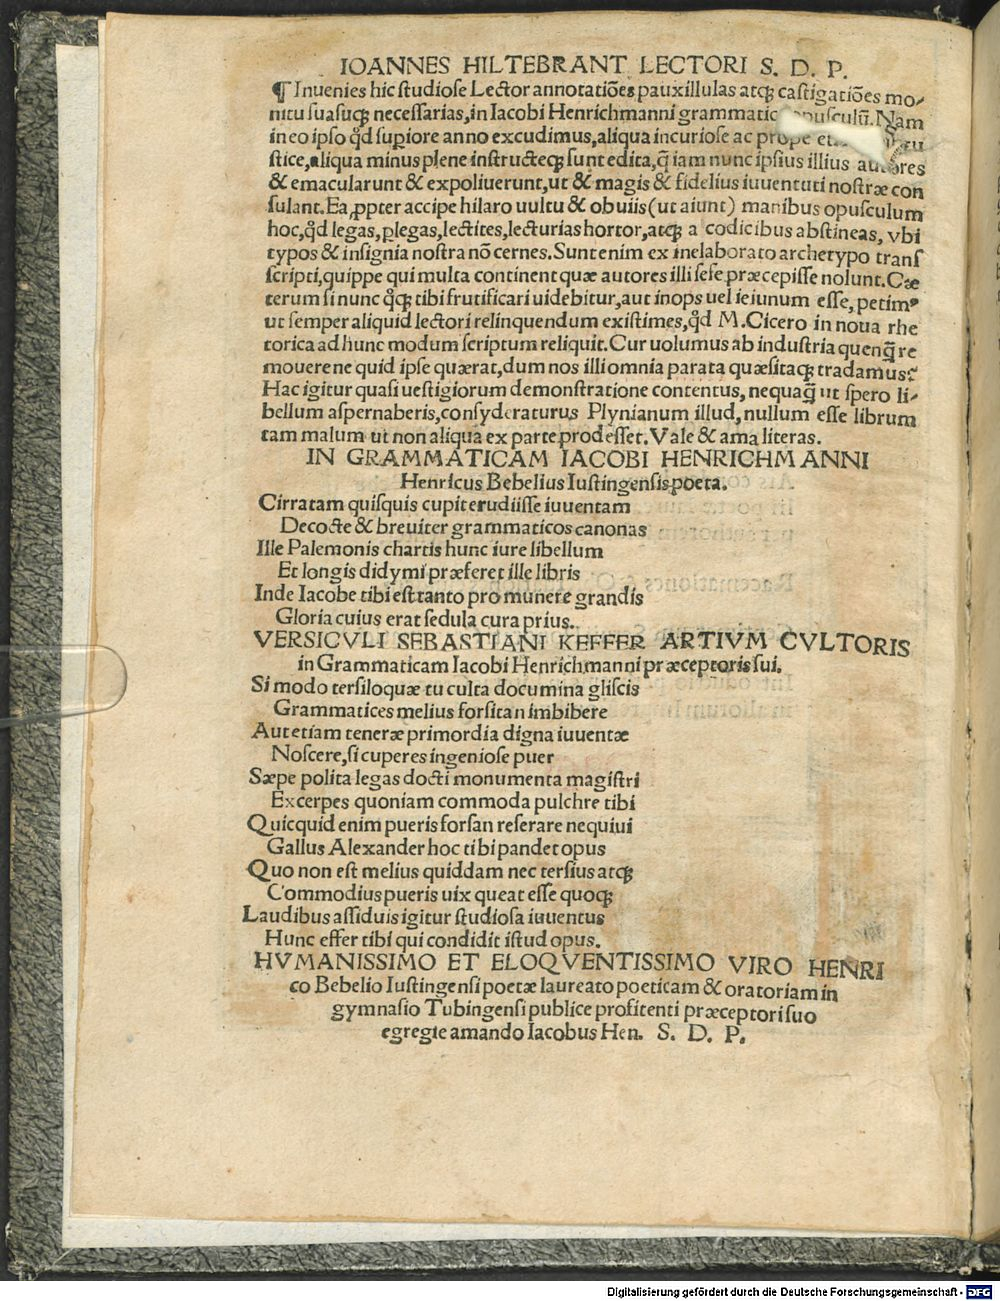 IOANNES HILTEBRANT LECTORI S. D. P.
¶ Inuenies hic studiose Lector annotatiões pauxillulas atqꝫ castigatiões mo⸗
nitu suasuqꝫ necessarias,in Iacobi Henrichmanni grammatic opusculū. Nam
in eo ipso qd̉ supiore anno excudimus,aliqua incuriose ac prope
stice,aliqua minus plene instructeqꝫ sunt edita,q̃ iam nunc ipsius illius autores
& emacularunt & expoliuerunt,ut & magis & fidelius iuuentuti nostræ con
sulant.Ea ꝓpter accipe hilaro uultu & obuiis (ut aiunt) manibus opusculum
hoc,qd̉ legas, ꝑlegas,lectites,lecturias hortor,atqꝫ a codicibus abstineas, vbi
typos & insignia nostra nõ cernes.Sunt enim ex inelaborato archetypo tranſ
scripti,quippe qui multa continent quæ autores illi sese præcepisse nolunt.Cæ
terum si nunc qͥqꝫ tibi frutificari uidebitur,aut inops uel ieiunum esse, petimꝰ
ut semper aliquid lectori relinquendum existimes,qd̉ M.Cicero in noua rhe
torica ad hunc modum scriptum reliquit.Cur uolumus ab industria quenq̃ re
mouere ne quid ipse quærat,dum nos illi omnia parata quæsitaqꝫ tradamus?
Hac igitur quasi uestigiorum demonstratione contentus, nequaq̃ ut spero li⸗
bellum aspernaberis,consyderaturus Plynianum illud, nullum esse librum
tam malum ut non aliqua ex parte prodesset. Vale & ama literas.
IN GRAMMATICAM IACOBI HENRICHMANNI
Henricus Bebelius Iustingensis poeta.
Cirratam quisquis cupit erudiisse iuuentam
Decocte & breuiter grammaticos canonas
Ille Palemonis chartis hunc iure libellum
Et longis didymi præferet ille libris
Inde Iacobe tibi est tanto pro munere grandis
Gloria cuius erat sedula cura prius.
VERSICVLI SEBASTIANI KEFFER ARTIVM CVLTORIS
in Grammaticam Iacobi Henrichmanni præceptoris sui.
Si modo tersiloquæ tu culta documina gliscis
Grammatices melius forsitan imbibere
Aut etiam teneræ primordia digna iuuentæ
Noscere,si cuperes ingeniose puer
Sæpe polita legas docti monumenta magistri
Excerpes quoniam commoda pulchre tibi
Quicquid enim pueris forsan reserare nequiui
Gallus Alexander hoc tibi pandet opus
Quo non est melius quiddam nec tersius atqꝫ
Commodius pueris uix queat esse quoqꝫ
Laudibus assiduis igitur studiosa iuuentus
Hunc effer tibi qui condidit istud opus.
HVMANISSIMO ET ELOQVENTISSIMO VIRO HENRI
co Bebelio Iustingensi poetæ laureato poeticam & oratoriam in
gymnasio Tubingensi publice profitenti præceptori suo
egregie amando Iacobus Hen. S. D. P.
Digitalisierung gefördert durch die Deutsche Forschungsgemeinschaft - DFG